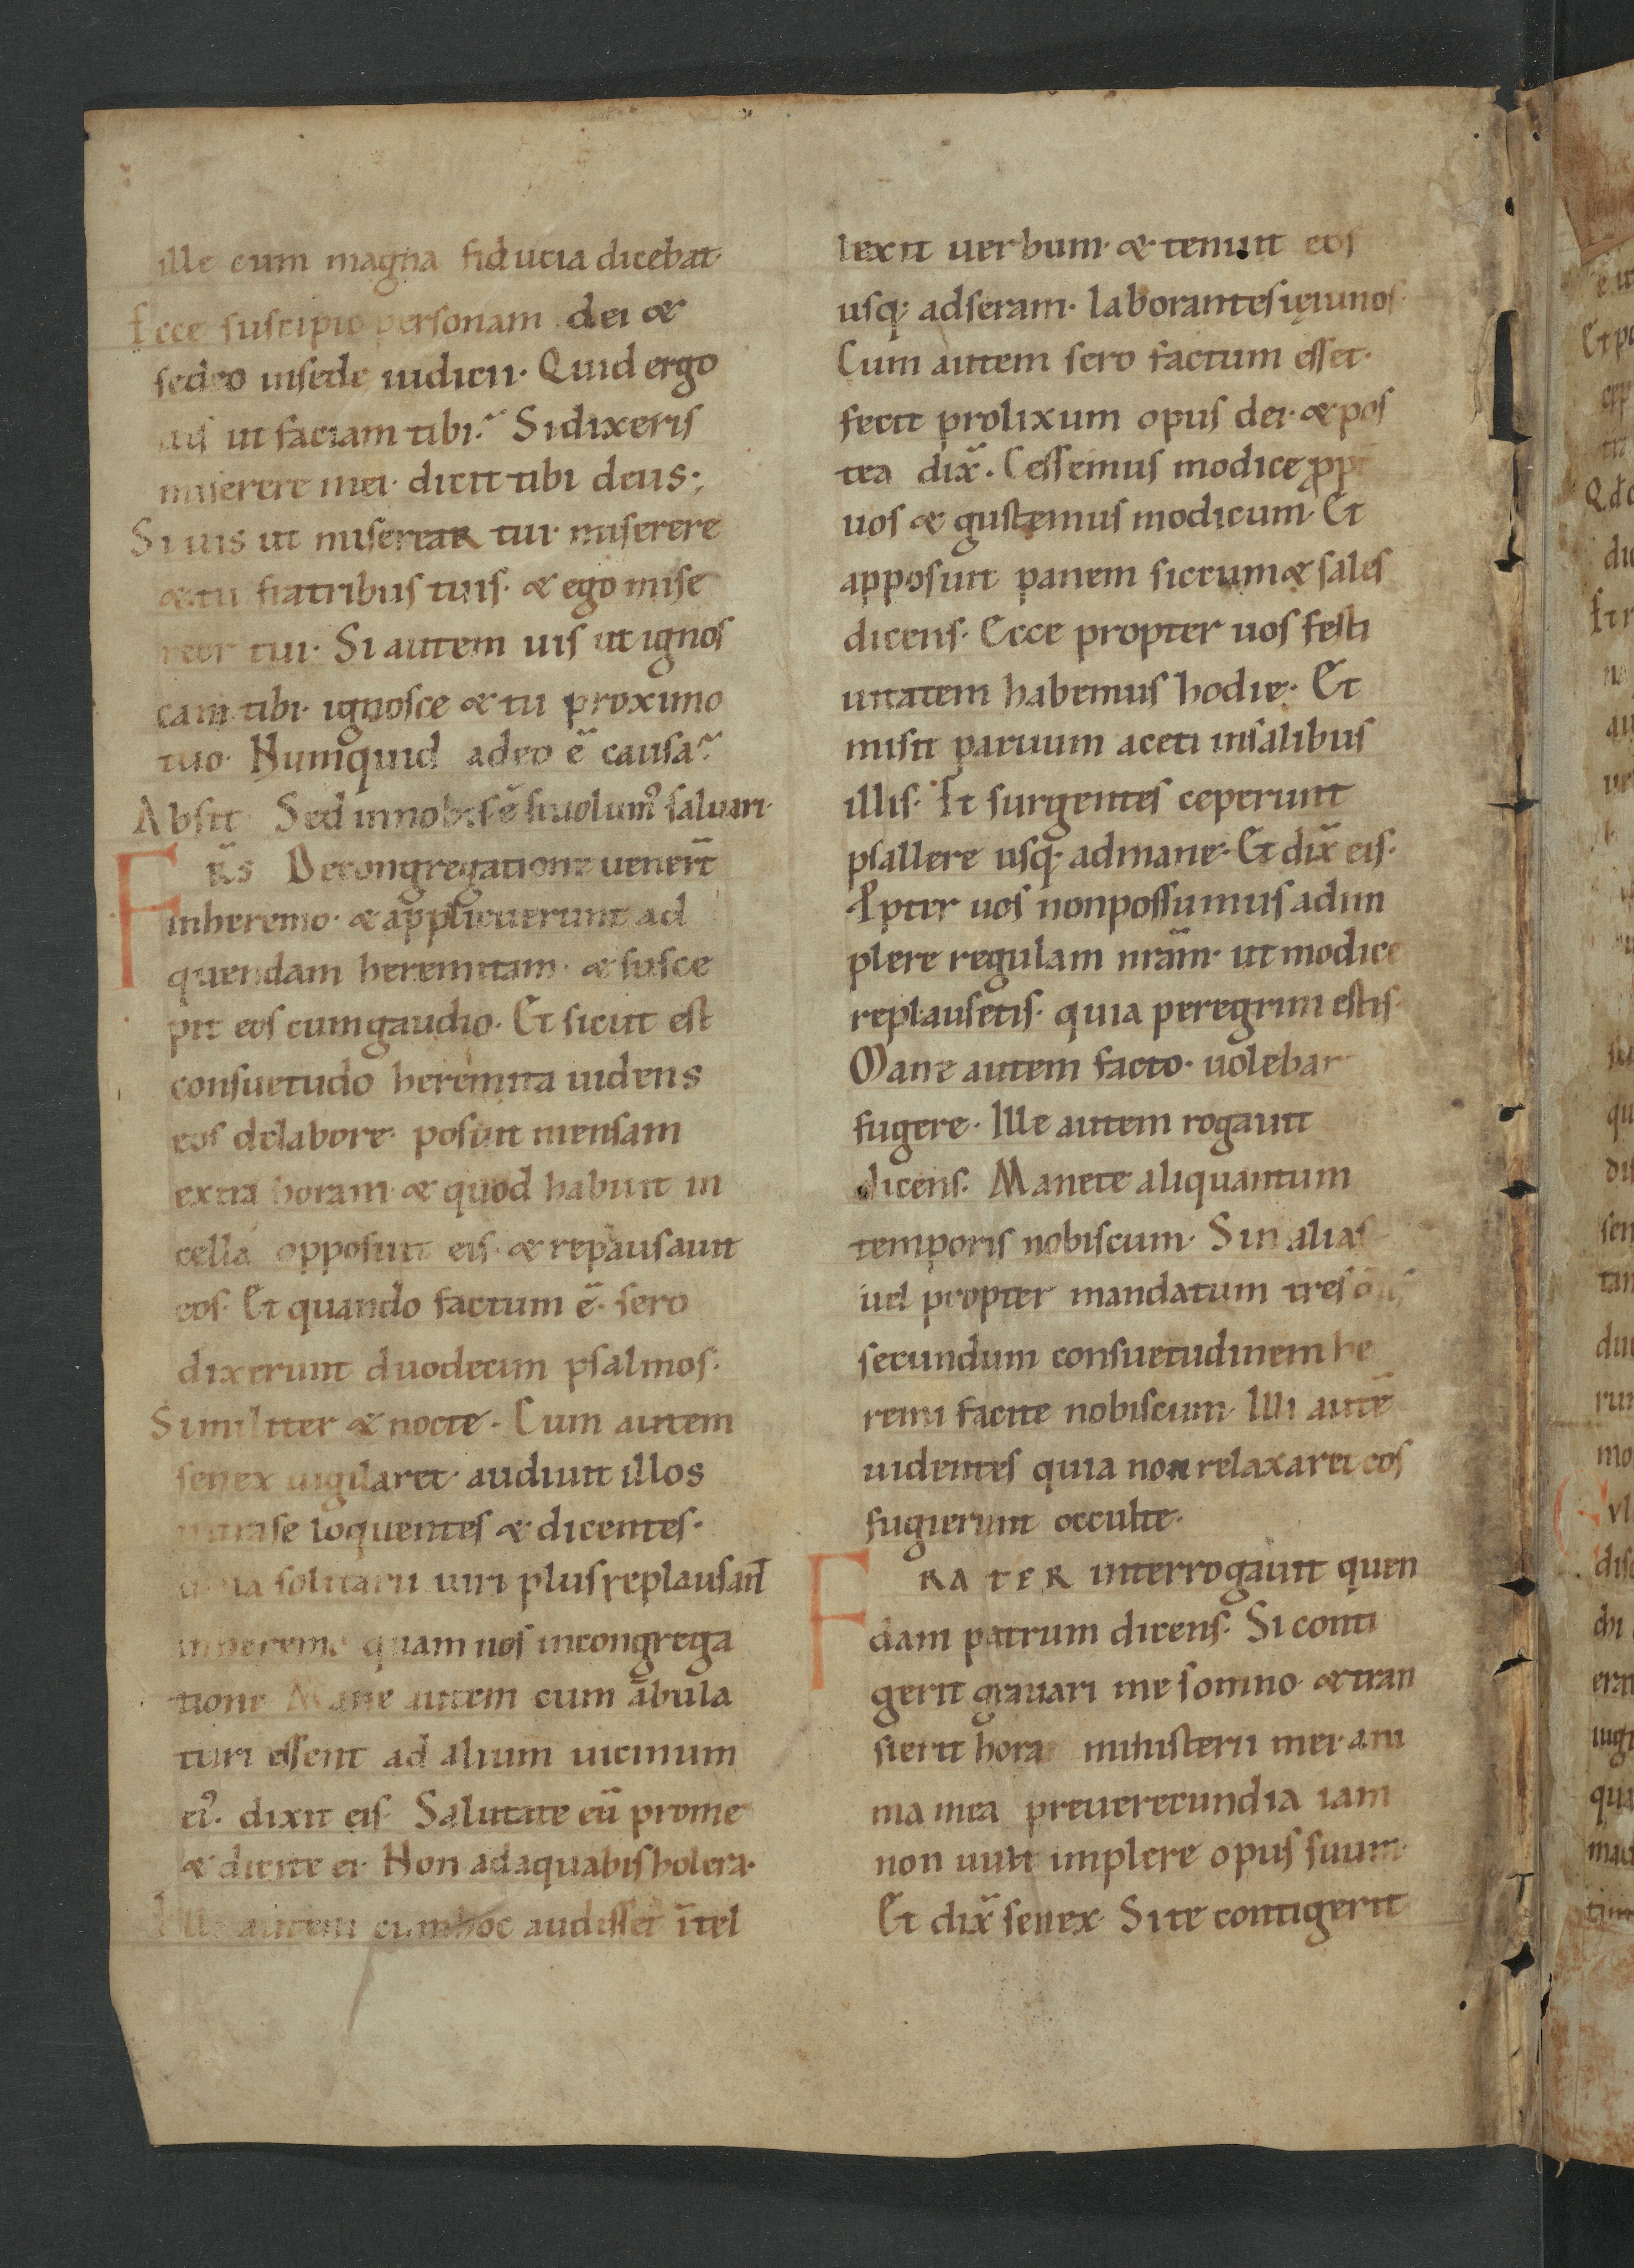 ille cum magna fiducia dicebat·
Ecce suscipio personam dei &
sedeo insede iudicii· Quid ergo
uis ut faciam tibi? Sidixeris
miserere mei· dicit tibi deus·;
Si uis ut miserear tui· miserere
& tu fratribus tuis· & ego mise
reor tui· Si autem uis ut ignos
cam tibi· ignosce & tu proximo
tuo· Numquid adeo ē causa?
Absit Sed innobis ē siuolum᾿ saluari·
FR̄S Decongregatione uener̄t
inheremo· & applicuerunt ad
quendam heremitam· & susce
pit eos cumgaudio· Et sicut est
consuetudo heremita uidens
eos delabore· posuit mensam
extra horam· & quod habuit in
cella opposuit eis· & repausauit
eos· Et quando factum ē· sero
dixerunt duodecim psalmos·
Similiter & nocte· Cum autem
senex uigilaret· audiuit illos
intrase loquentes & dicentes·
quia solitarii uiri plus replausant̄
inheremo quam nos incongrega
tione Mane autem cum ābula
turi essent ad alium uicinum
ei᾿· dixit eis· Salutate eū prome
& dicite ei· Non adaquabis holera·
Ille autem cumhoc audisset ītel
lexit uerbum· & tenuit eos
usq; adseram· laborantes ieiunos·
Cum autem sero factum esset·
fecit prolixum opus dei· & pos
tea dix̄· Cessemus modice ppt
uos & gustemus modicum· Et
apposuit panem siccum & sales
dicens· Ecce propter uos festi
uitatem habemus hodie· Et
misit paruum aceti insalibus
illis· Et surgentes ceperunt
psallere usq; admane· Et dix̄ eis·
Ppter uos nonpossumus adim
plere regulam nr̄am· ut modice
replausetis· quia peregrini estis·
Mane autem facto· uolebat
fugere· Ille autem rogauit
dicens· Manete aliquantum
temporis nobiscum· Sin alias
uel propter mandatum tres
secundum consuetudinem he
remi facite nobiscum· Illi autē
uidentes quia non relaxaret eos
fugierunt occulte·
FRATER interrogauit quen
dam patrum dicens· Si conti
gerit grauari me somno· & tran
sierit hora ministerii mei· ani
ma mea preuerecundia iam
non uult implere opus suum·
Et dix̄ senex· Site contigerit